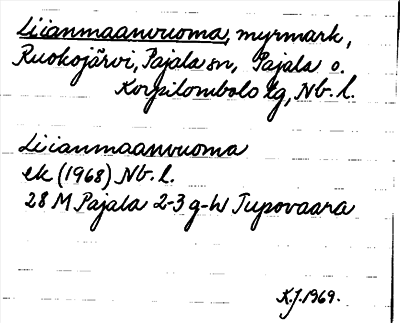 Liianmaanvuoma, myrmark,
Ruokojärvi, Pajala sn, Pajala o.
Korpilombolo tg, Nb. l.
Liianmaanvuoma
ek (1968) Nb. l.
28 M Pajala 2-3 g-h Tupovaara
K.J. 1969.